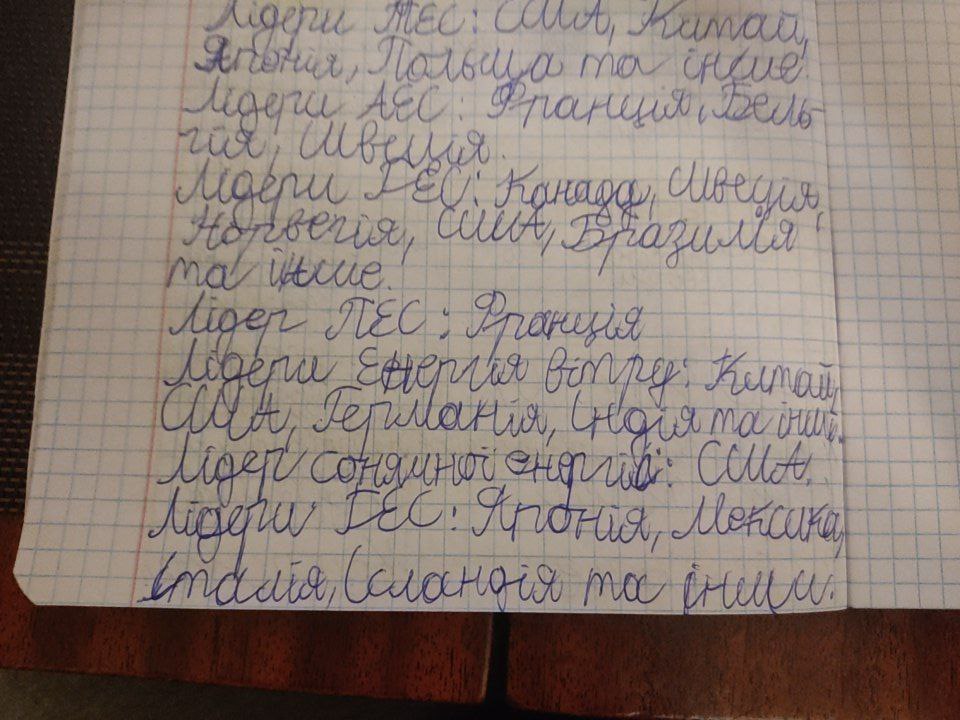 Лідери ТЕС: США, Китай,
Японія, Польща та інше.
Лідери АЕС: Франція, Бель-
гія, Швеція.
Лідери ГЕС: Канада, Швеція,
Норвегія, США, Бразилія
та інше.
Лідер ПЕС: Франція
Лідери Енергія вітру: Китай,
США, Германія, Індія та інші.
Лідер сонячної енергії: США.
Лідери ГЕС: Японія, Мексика,
Італія, Ісландія та інши.